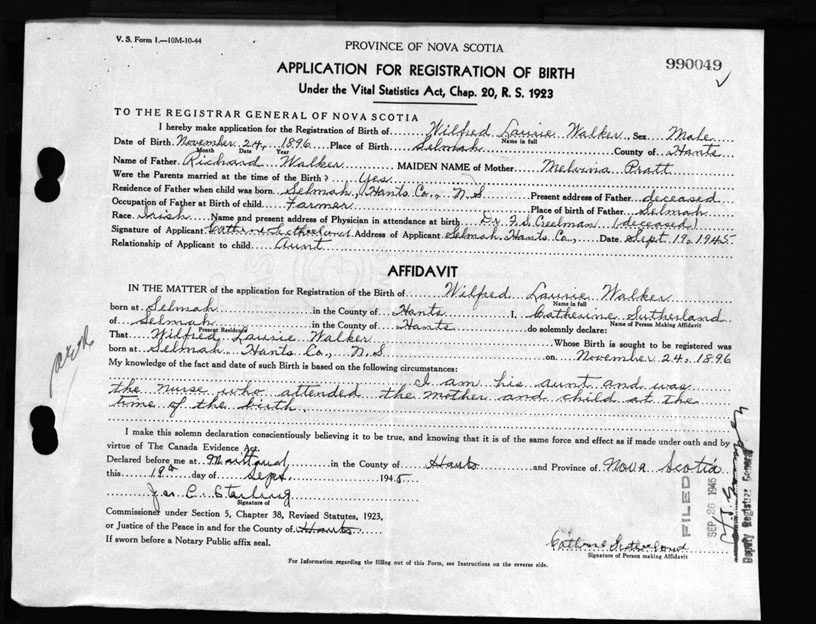 V. S. Form 1.—10M-10-44
PROVINCE OF NOVA SCOTIA
990049
APPLICATION FOR REGISTRATION OF BIRTH
Under the Vital Statistics Act, Chap. 20, R. S. 1923
TO THE REGISTRAR GENERAL OF NOVA SCOTIA
I hereby make application for the Registration of Birth of Wilfred Laurie Walker Sex Male
Name in full
Date of Birth November 24, 1896 Place of Birth Selmah County of Hants
Month Date Year
Name of Father Richard Walker MAIDEN NAME of Mother Melvina Pratt
Were the Parents married at the time of the Birth? Yes
Residence of Father when child was born Selmah, Hants Co., N.S Present address of Father deceased
Occupation of Father at Birth of child Farmer Place of birth of Father Selmah
Race Irish Name and present address of Physician in attendance at birth Dr. F. S. Creelman (deceased)
Signature of Applicant Catherine Sutherland Address of Applicant Selmah, Hants Co., Date Sept. 19, 1945
Relationship of Applicant to child Aunt
AFFIDAVIT
IN THE MATTER of the application for Registration of the Birth of Wilfred Laurie Walker
Name in full
born at Selmah in the County of Hants I, Catherine Sutherland
Name of Person Making Affidavit
of Selmah in the County of Hants do solemnly declare:
Present Residence
That Wilfred Laurie Walker Whose Birth is sought to be registered was
born at Selmah, Hants Co., N.S on November 24, 1896
My knowledge of the fact and date of such Birth is based on the following circumstances:
I am his aunt and was
the nurse who attended the mother and child at the
time of the birth.
I make this solemn declaration conscientiously believing it to be true, and knowing that it is of the same force and effect as if made under oath and by
virtue of The Canada Evidence Act.
Declared before me at Maitland in the County of Hants and Province of Nova Scotia
this 19th day of Sept. 1945
Jas. C. Sterling
Signature of
Commissioner under Section 5, Chapter 38, Revised Statutes, 1923,
or Justice of the Peace in and for the County of Hants
If sworn before a Notary Public affix seal.
Catherine Sutherland
Signature of Person making Affidavit
For Information regarding the filling out of this Form, see Instructions on the reverse side.
FILED
SEP 28 1945
Deputy Registrar General